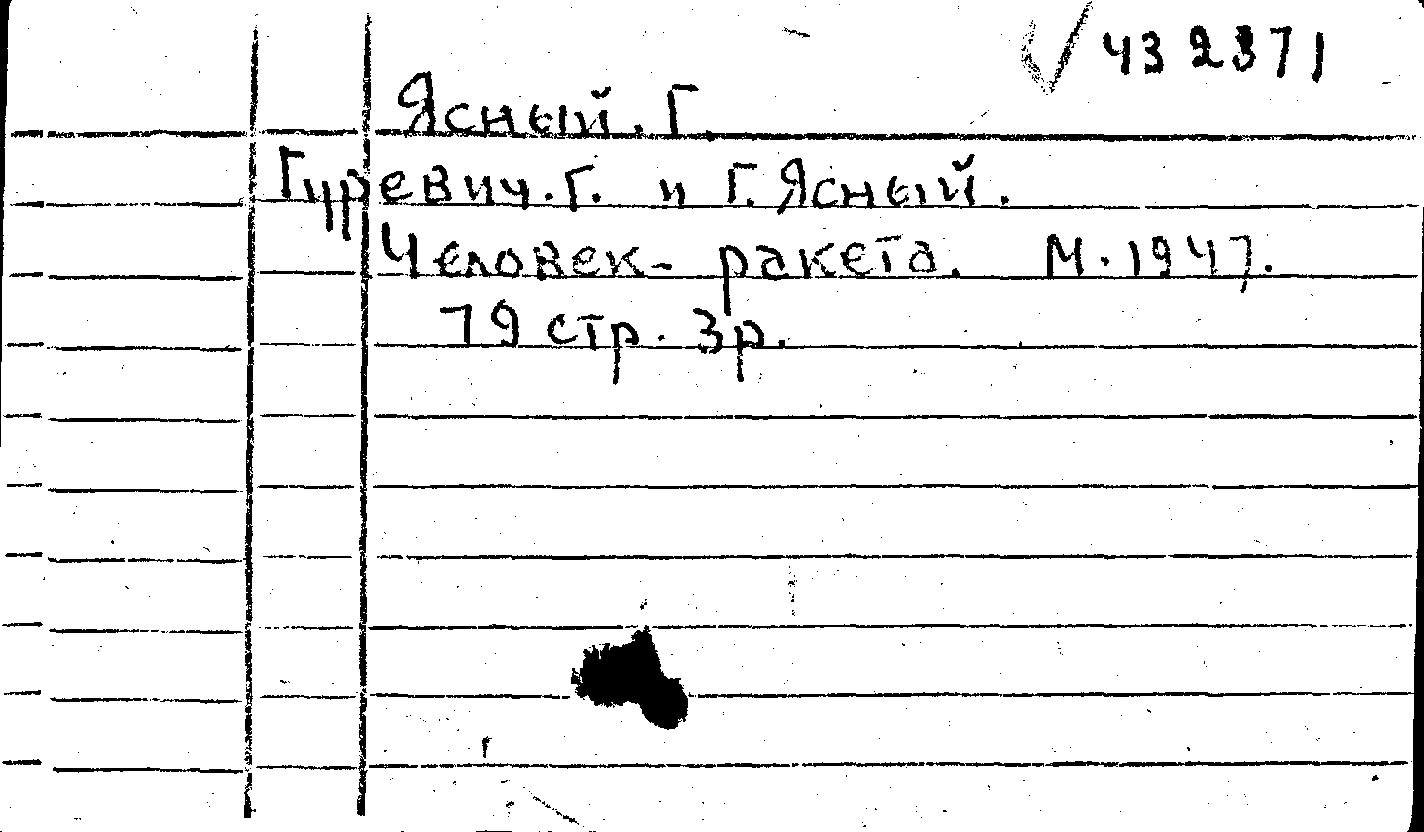 √ 43 2371
Ясный. Г.
Гуревич. Г. и Г. Ясный.
Человек - ракета. М. 1947.
79 стр. 3р.